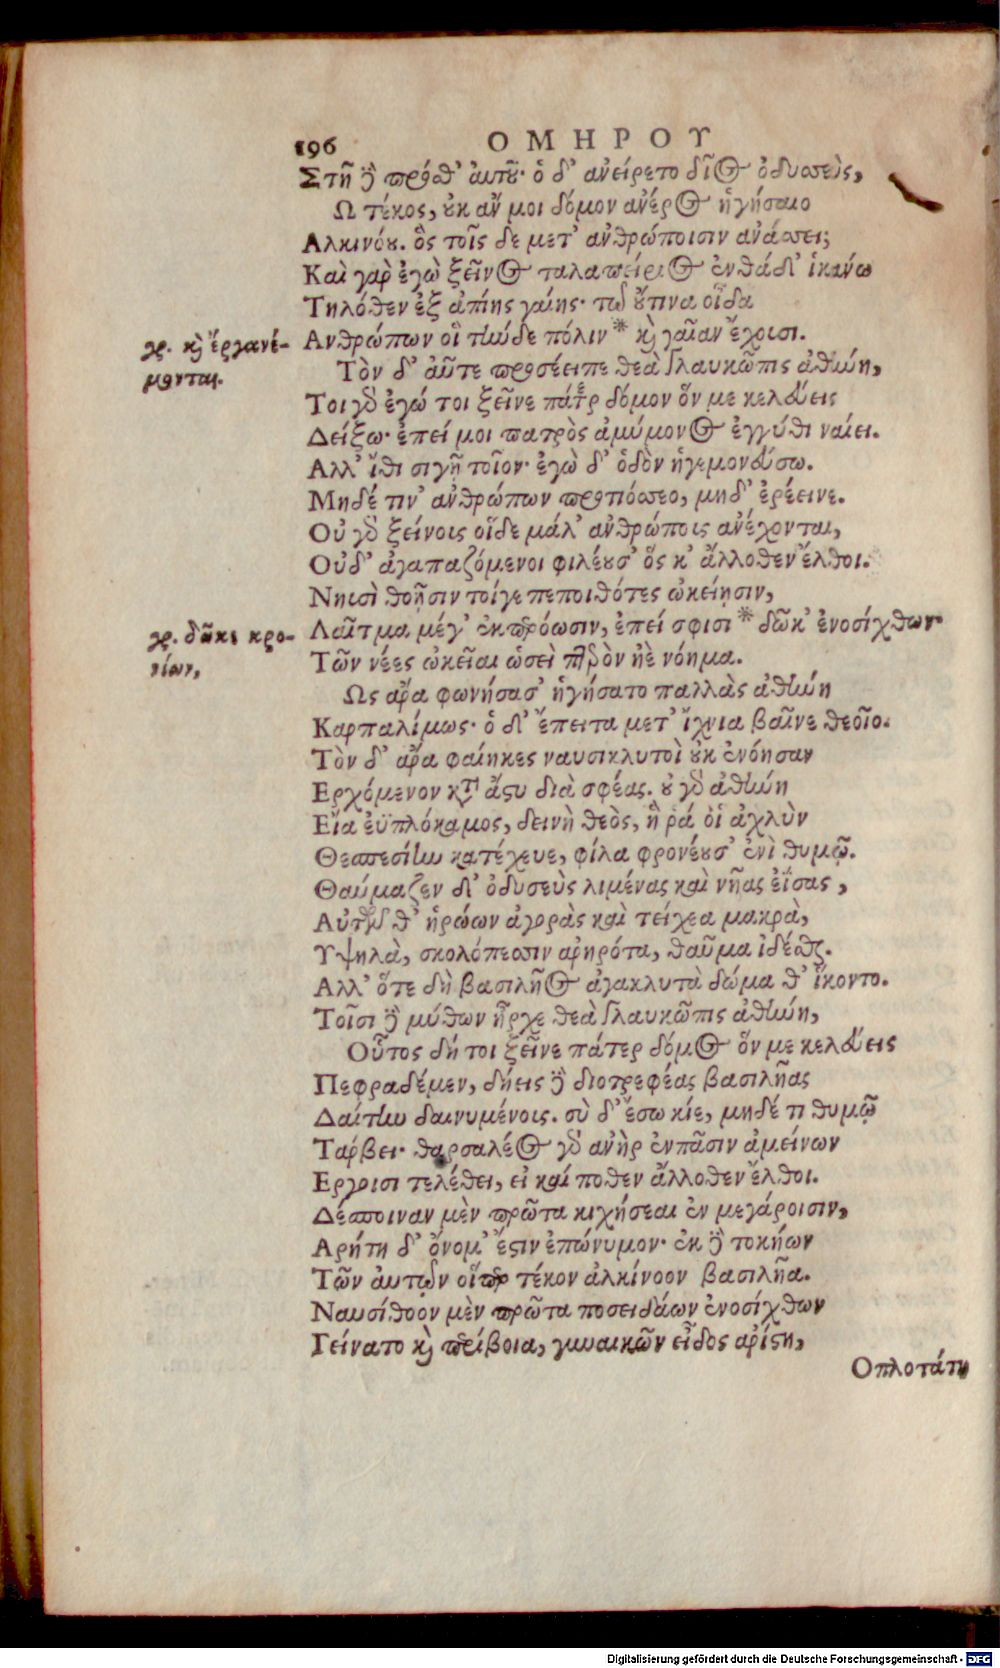 196 ΟΜΗΡΟΥ
Στῆ δὲ πρόσθ' αὐτοῦ· ὁ δ' ἀνείρετο δῖος ὀδυσσεὺς,
Ω τέκος, οὐκ ἄν μοι δόμον ἀνέρος ἡγήσαιο
Αλκινόου. ὃς τοῖς δε μετ' ἀνθρώποισιν ἀνάσσει;
Καὶ γαρ ἐγὼ ξεῖνος ταλαπείριος ἐνθάδ' ἱκάνω
Τηλόθεν ἐξ ἀπίης γαίης· τῶ οὔτινα οἶδα
Ανθρώπων οἳ τήνδε πόλιν * καὶ γαῖαν ἔχουσι.
γρ. καὶ ἔργα νέ-
μονται.
Τὸν δ' αὖτε προσέειπε θεὰ γλαυκῶπις ἀθήνη,
Τοι γὰρ ἐγώ τοι ξεῖνε πάτερ δόμον ὅν με κελεύεις
Δείξω· ἐπεί μοι πατρὸς ἀμύμονος ἐγγύθι ναίει.
Αλλ' ἴθι σιγῇ τοῖον· ἐγὼ δ' ὁδὸν ἡγεμονεύσω.
Μηδέ τιν' ἀνθρώπων προτιόσσεο, μηδ' ἐρέεινε.
Οὐ γὰρ ξείνοις οἵδε μάλ' ἀνθρώποις ἀνέχονται,
Οὐδ' ἀγαπαζόμενοι φιλέουσ' ὅς κ' ἄλλοθεν ἔλθοι.
Νηυσὶ θοῇσιν τοίγε πεποιθότες ὠκείῃσιν,
Λαῖτμα μέγ' ἐκπερόωσιν, ἐπεί σφισι * δῶκ' ἐνοσίχθων
γρ. δῶκε κρο-
νίων,
Τῶν νέες ὠκεῖαι ὡσεὶ πτερὸν ἠὲ νόημα.
Ως ἄρα φωνήσασ' ἡγήσατο παλλὰς ἀθήνη
Καρπαλίμως· ὁ δ' ἔπειτα μετ' ἴχνια βαῖνε θεοῖο.
Τὸν δ' ἄρα φαίηκες ναυσικλυτοὶ οὐκ ἐνόησαν
Ερχόμενον κατὰ ἄστυ διὰ σφέας. οὐ γὰρ ἀθήνη
Εἴα ἐϋπλόκαμος, δεινὴ θεὸς, ἥ ῥά οἱ ἀχλὺν
Θεσπεσίην κατέχευε, φίλα φρονέουσ' ἐνὶ θυμῷ.
Θαύμαζεν δ' ὀδυσεὺς λιμένας καὶ νῆας ἐΐσας,
Αὐτῶν θ' ἡρώων ἀγορὰς καὶ τείχεα μακρὰ,
Υψηλὰ, σκολόπεσσιν ἀρηρότα, θαῦμα ἰδέσθαι.
Αλλ' ὅτε δὴ βασιλῆος ἀγακλυτὰ δώμαθ' ἵκοντο.
Τοῖσι δὲ μύθων ἦρχε θεὰ γλαυκῶπις ἀθήνη,
Οὗτος δή τοι ξεῖνε πάτερ δόμος ὅν με κελεύεις
Πεφραδέμεν, δήεις δὲ διοτρεφέας βασιλῆας
Δαίτην δαινυμένοις. σὺ δ' ἔσω κίε, μηδέ τι θυμῷ
Ταρβει· θαρσαλέος γὰρ ἀνὴρ ἐν πᾶσιν ἀμείνων
Εργοισι τελέθει, εἰ καί ποθεν ἄλλοθεν ἔλθοι.
Δέσποιναν μὲν πρῶτα κιχήσεαι ἐν μεγάροισιν,
Αρήτη δ' ὄνομ' ἔστιν ἐπώνυμον· ἐκ δὲ τοκήων
Τῶν αὐτῶν οἵπερ τέκον ἀλκίνοον βασιλῆα.
Ναυσίθοον μὲν πρῶτα ποσειδάων ἐνοσίχθων
Γείνατο καὶ περίβοια, γυναικῶν εἶδος ἀρίστη,
Οπλοτάτη
Digitalisierung gefördert durch die Deutsche Forschungsgemeinschaft - DFG